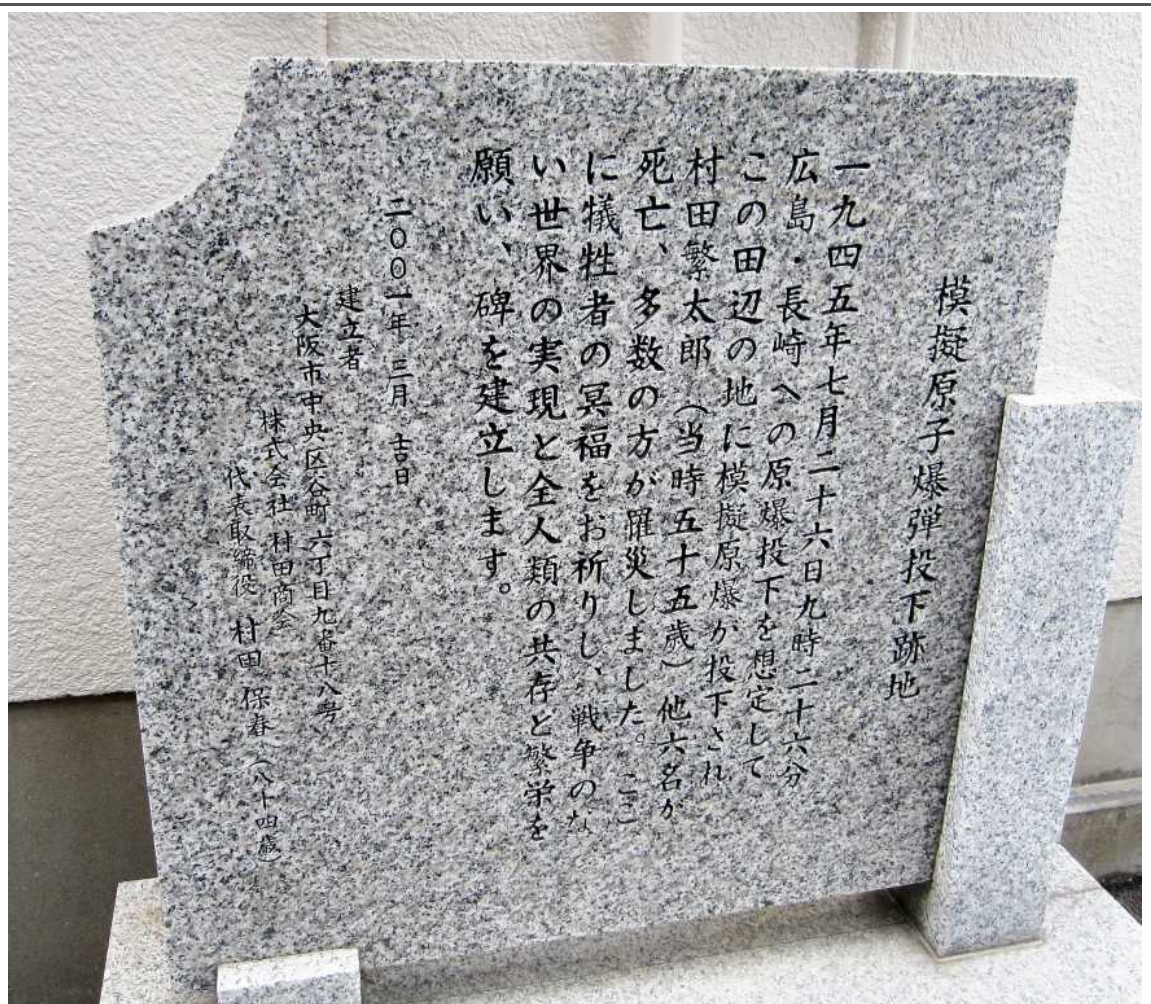 模擬原子爆弾投下跡地
一九四五年七月二十六日九時二十六分
広島・長崎への原爆投下を想定して
この田辺の地に模擬原爆が投下され
村田繁太郎(当時五十五歳)他六名が
死亡、多数の方が罹災しました。ここ
に犠牲者の冥福をお祈りし、戦争のな
い世界の実現と全人類の共存と繁栄を
願い、碑を建立します。
二〇〇一年 三月 吉日
建立者
大阪市中央区谷町六丁目九番十八号
株式会社 村田商会
代表取締役 村田 保春(八十四歳)